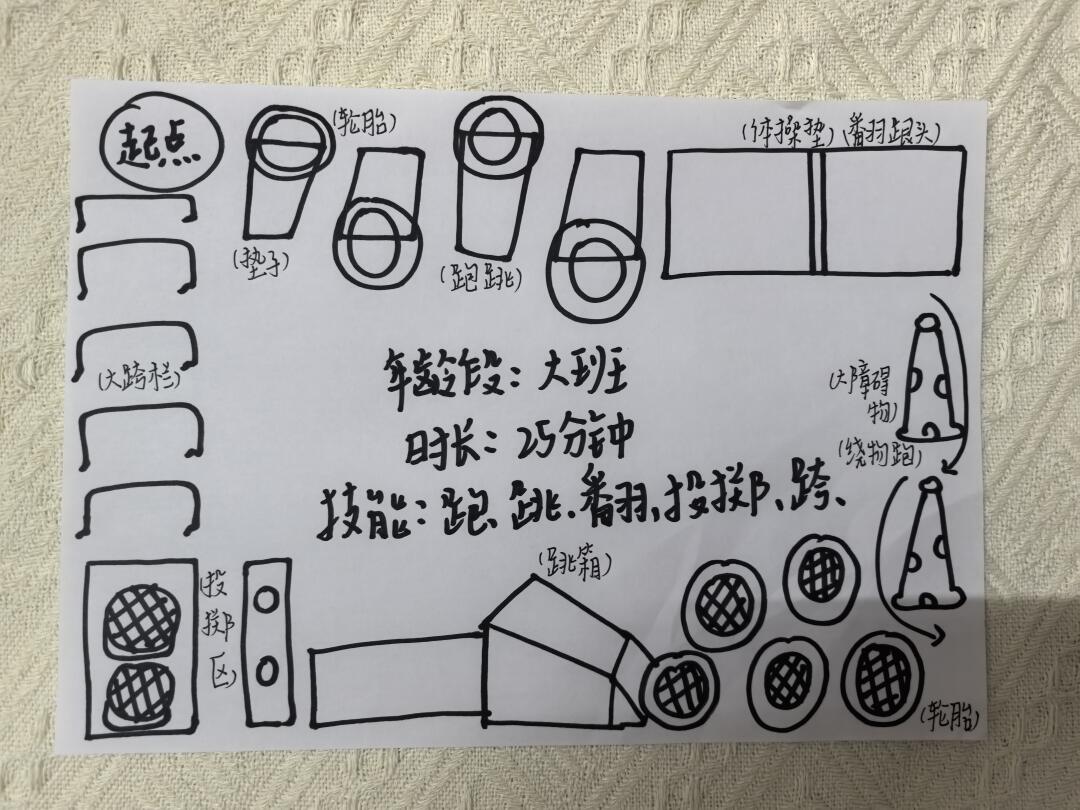 起点
(轮胎)
(体操垫)(番羽跟头)
(垫子)
(跑跳)
(大跨栏)
年龄段：大班
时长：25分钟
技能：跑、跳、番羽、投掷、跨、
(大障碍
物)
(绕物跑)
(跳箱)
(投
掷
区)
(轮胎)